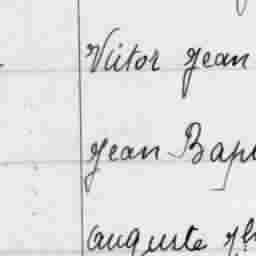 Victor Jean
Jean Bap
Auguste